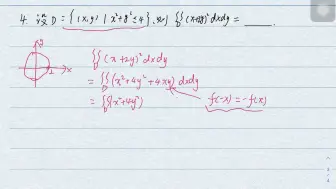 4. 设 D = {(x,y) | x²+y² ≤ 4}, 则 ∬_D (x+2y)² dxdy = ______.
y
x
2
∬_D (x+2y)² dxdy
= ∬_D (x²+4y²+4xy) dxdy
= ∬_D (x²+4y²)
f(-x) = -f(x)